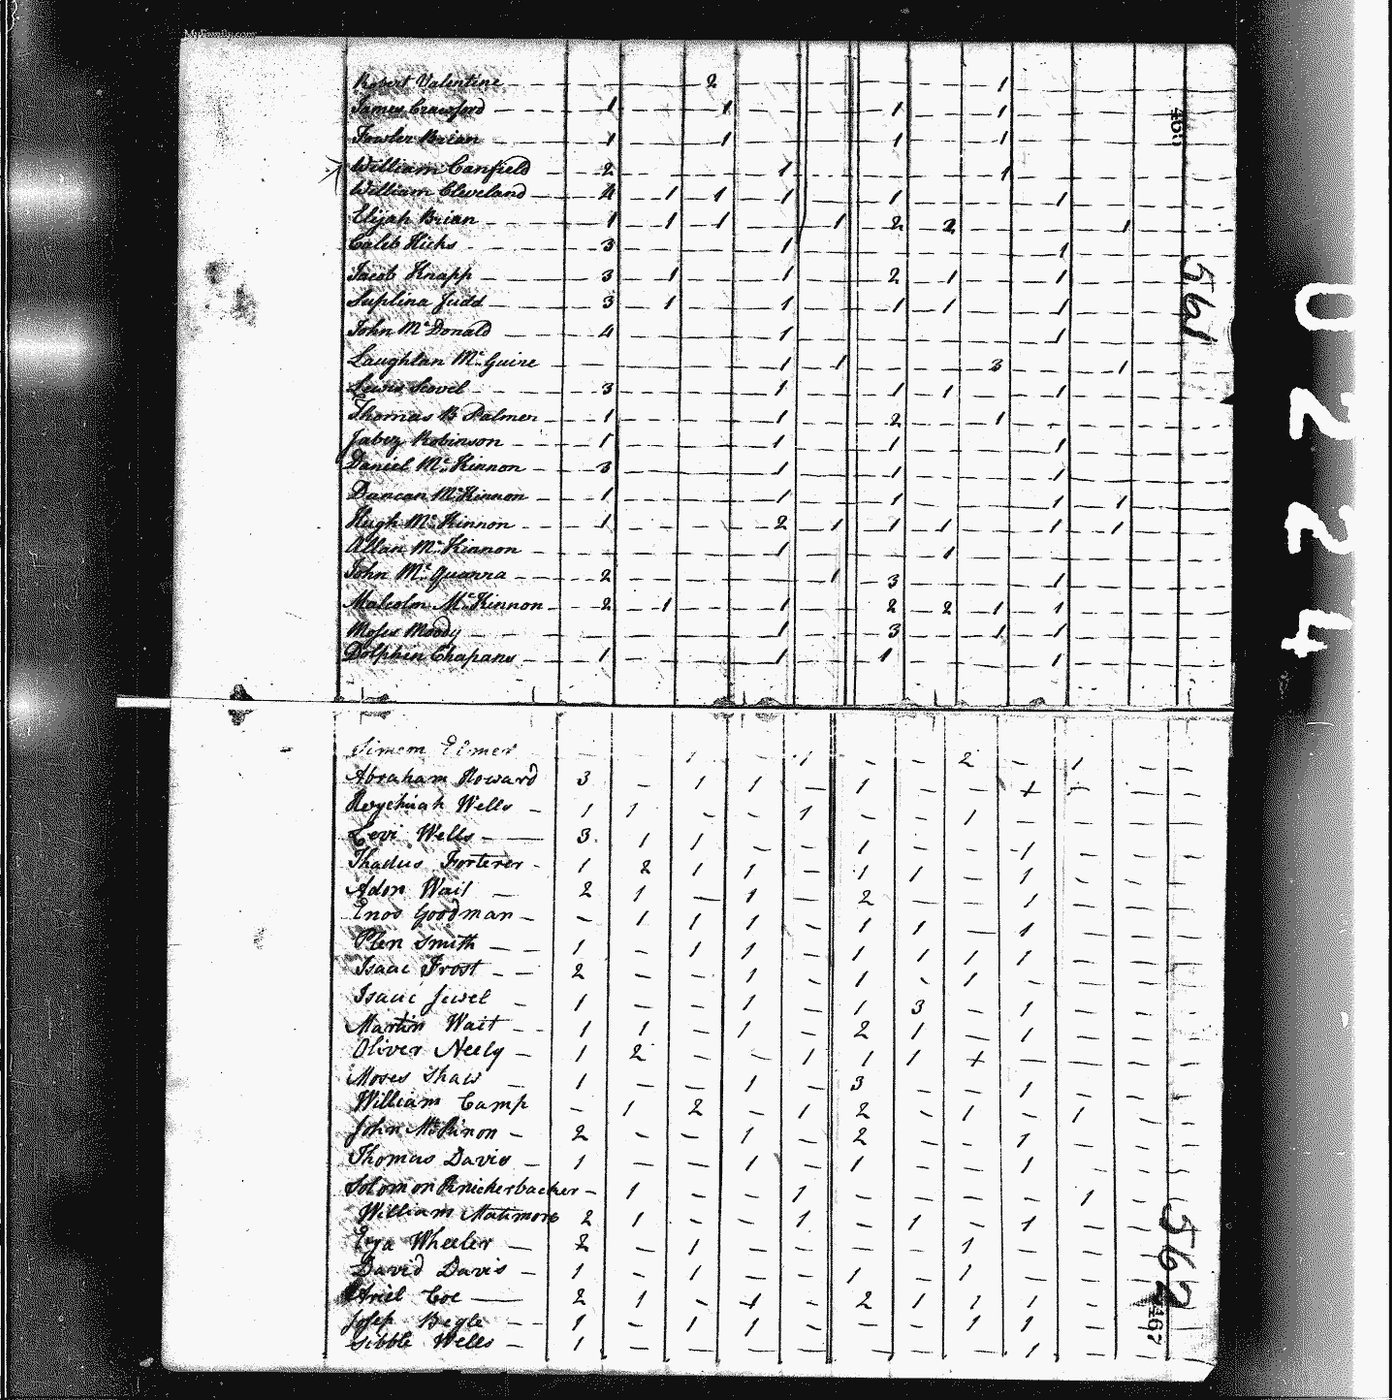 MyFamily.com
Robert Valentine — — 2 — — — — 1 — — —
James Crawford 1 — 1 — — 1 — 1 — — —
Fowler Brian 1 — 1 — — 1 — 1 — — —
William Canfield 2 — — 1 — — — 1 — — —
William Cleveland 4 1 1 1 — 1 — — 1 — —
Elijah Brian 1 1 1 — 1 2 2 — — 1 —
Caleb Hicks 3 — — 1 — — — — 1 — —
Jacob Knapp 3 1 — 1 — 2 1 — 1 — —
Suplina Judd 3 1 — 1 — 1 1 — 1 — —
John McDonald 4 — — 1 — — — — 1 — —
Laughlan Mc Guire — — — 1 1 — — 3 — 1 —
Lewis Scovel 3 — — 1 — 1 1 — 1 — —
Thomas B Palmer 1 — — 1 — 2 — 1 — — —
Jabez Robinson 1 — — 1 — 1 — — 1 — —
Daniel Mc Kinnon 3 — — 1 — 1 — — 1 — —
Duncan McKinnon 1 — — 1 — 1 — — 1 1 —
Hugh Mc Kinnon 1 — — 2 1 1 1 — 1 1 —
Allan Mc Kinnon — — — 1 — — 1 — — — —
John Mc Quarra 2 — — — 1 3 — — 1 — —
Malcolm McKinnon 2 1 — 1 — 2 2 1 1 — —
Moses Moody — — — 1 — 3 — 1 1 — —
Dolphin Chapans 1 — — 1 — 1 — — 1 — —
466
561
0224
Simeon Elmer — — 1 — 1 — — 2 — 1 — —
Abraham Howard 3 — 1 1 — 1 — — 1 — — —
Wells — 1 1 — — 1 — — 1 — — — —
Levi Wells — 3 1 1 — — 1 — — 1 — — —
Thadus Forterer — 1 2 1 1 — 1 1 — 1 — — —
Adon Wait — 2 1 — 1 — 2 — — 1 — — —
Enos Goodman — — 1 1 1 — 1 1 — 1 — — —
Plen Smith — 1 — 1 1 — 1 1 1 1 — — —
Isaac Frost — 2 — — 1 — 1 — 1 — — — —
Isaac Jewel — 1 — — 1 — 1 3 — 1 — — —
Martin Wait — 1 1 — 1 — 2 1 — 1 — — —
Oliver Neely — 1 2 — — 1 1 1 + — — — —
Moses Shaw — 1 — — 1 — 3 — — 1 — — —
William Camp — 1 2 — 1 2 — 1 — 1 — —
John McKinon — 2 — — 1 — 2 — — 1 — — —
Thomas Davis — 1 — — 1 — 1 — — 1 — — —
Solomon Knickerbacker — 1 — — 1 — — — — 1 — —
William Matimore 2 1 — — 1 — 1 — 1 — — —
Ezra Wheeler — 2 — 1 — — — — 1 — — — —
David Davis — 1 — 1 — — 1 — 1 — — — —
Ariel Coe — 2 1 — 1 — 2 1 1 1 — — —
Josep Begle — 1 — 1 1 — — — 1 1 — — —
Gibble Wells — 1 — — — — — — — 1 — — —
562
467